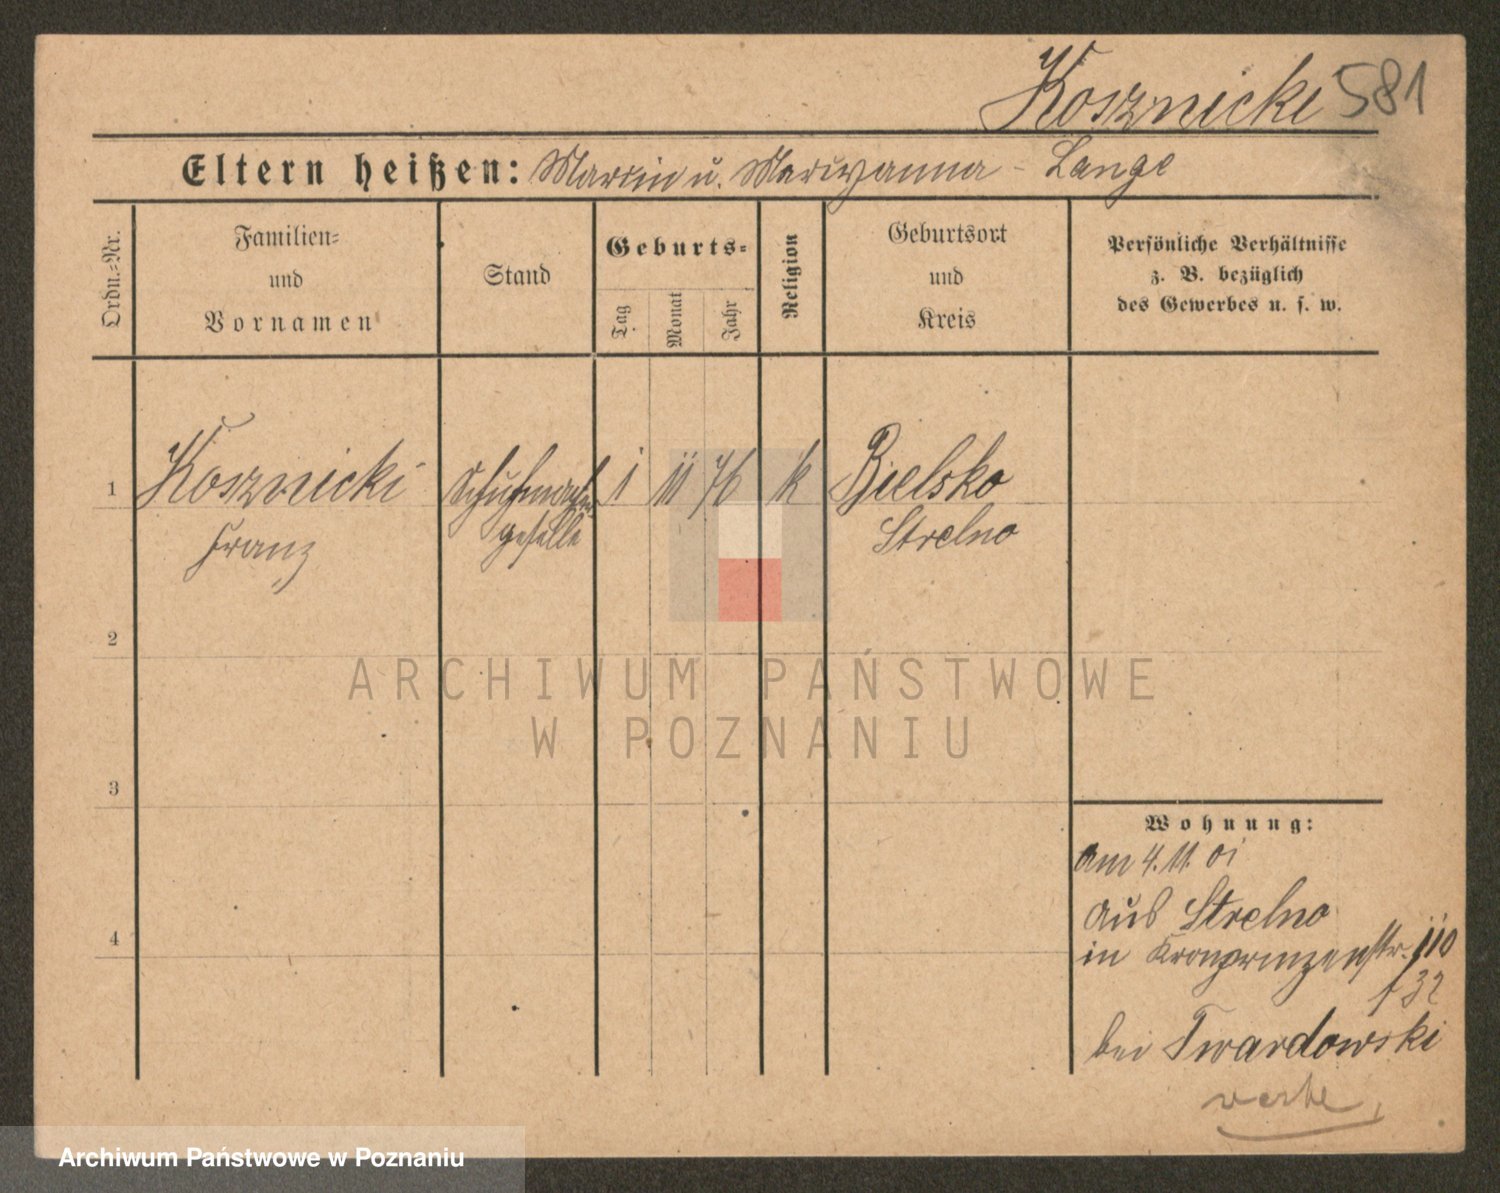 Kosznicki 581
Eltern heißen: Marcin u. Maryanna - Lange
Ordn.-Nr.
Familien-
und
Vornamen
Stand
Geburts-
Tag
Monat
Jahr
Religion
Geburtsort
und
Kreis
Persönliche Verhältnisse
z. B. bezüglich
des Gewerbes u. s. w.
1 Kosznicki Schuhmacher 1 11 76 k Bielsko
Franz geselle Strelno
2
3
4
Wohnung:
am 4.11.01
aus Strelno
in Kronprinzenstr. 110
f 32
bei Twardowski
ARCHIWUM PAŃSTWOWE
W POZNANIU
Archiwum Państwowe w Poznaniu